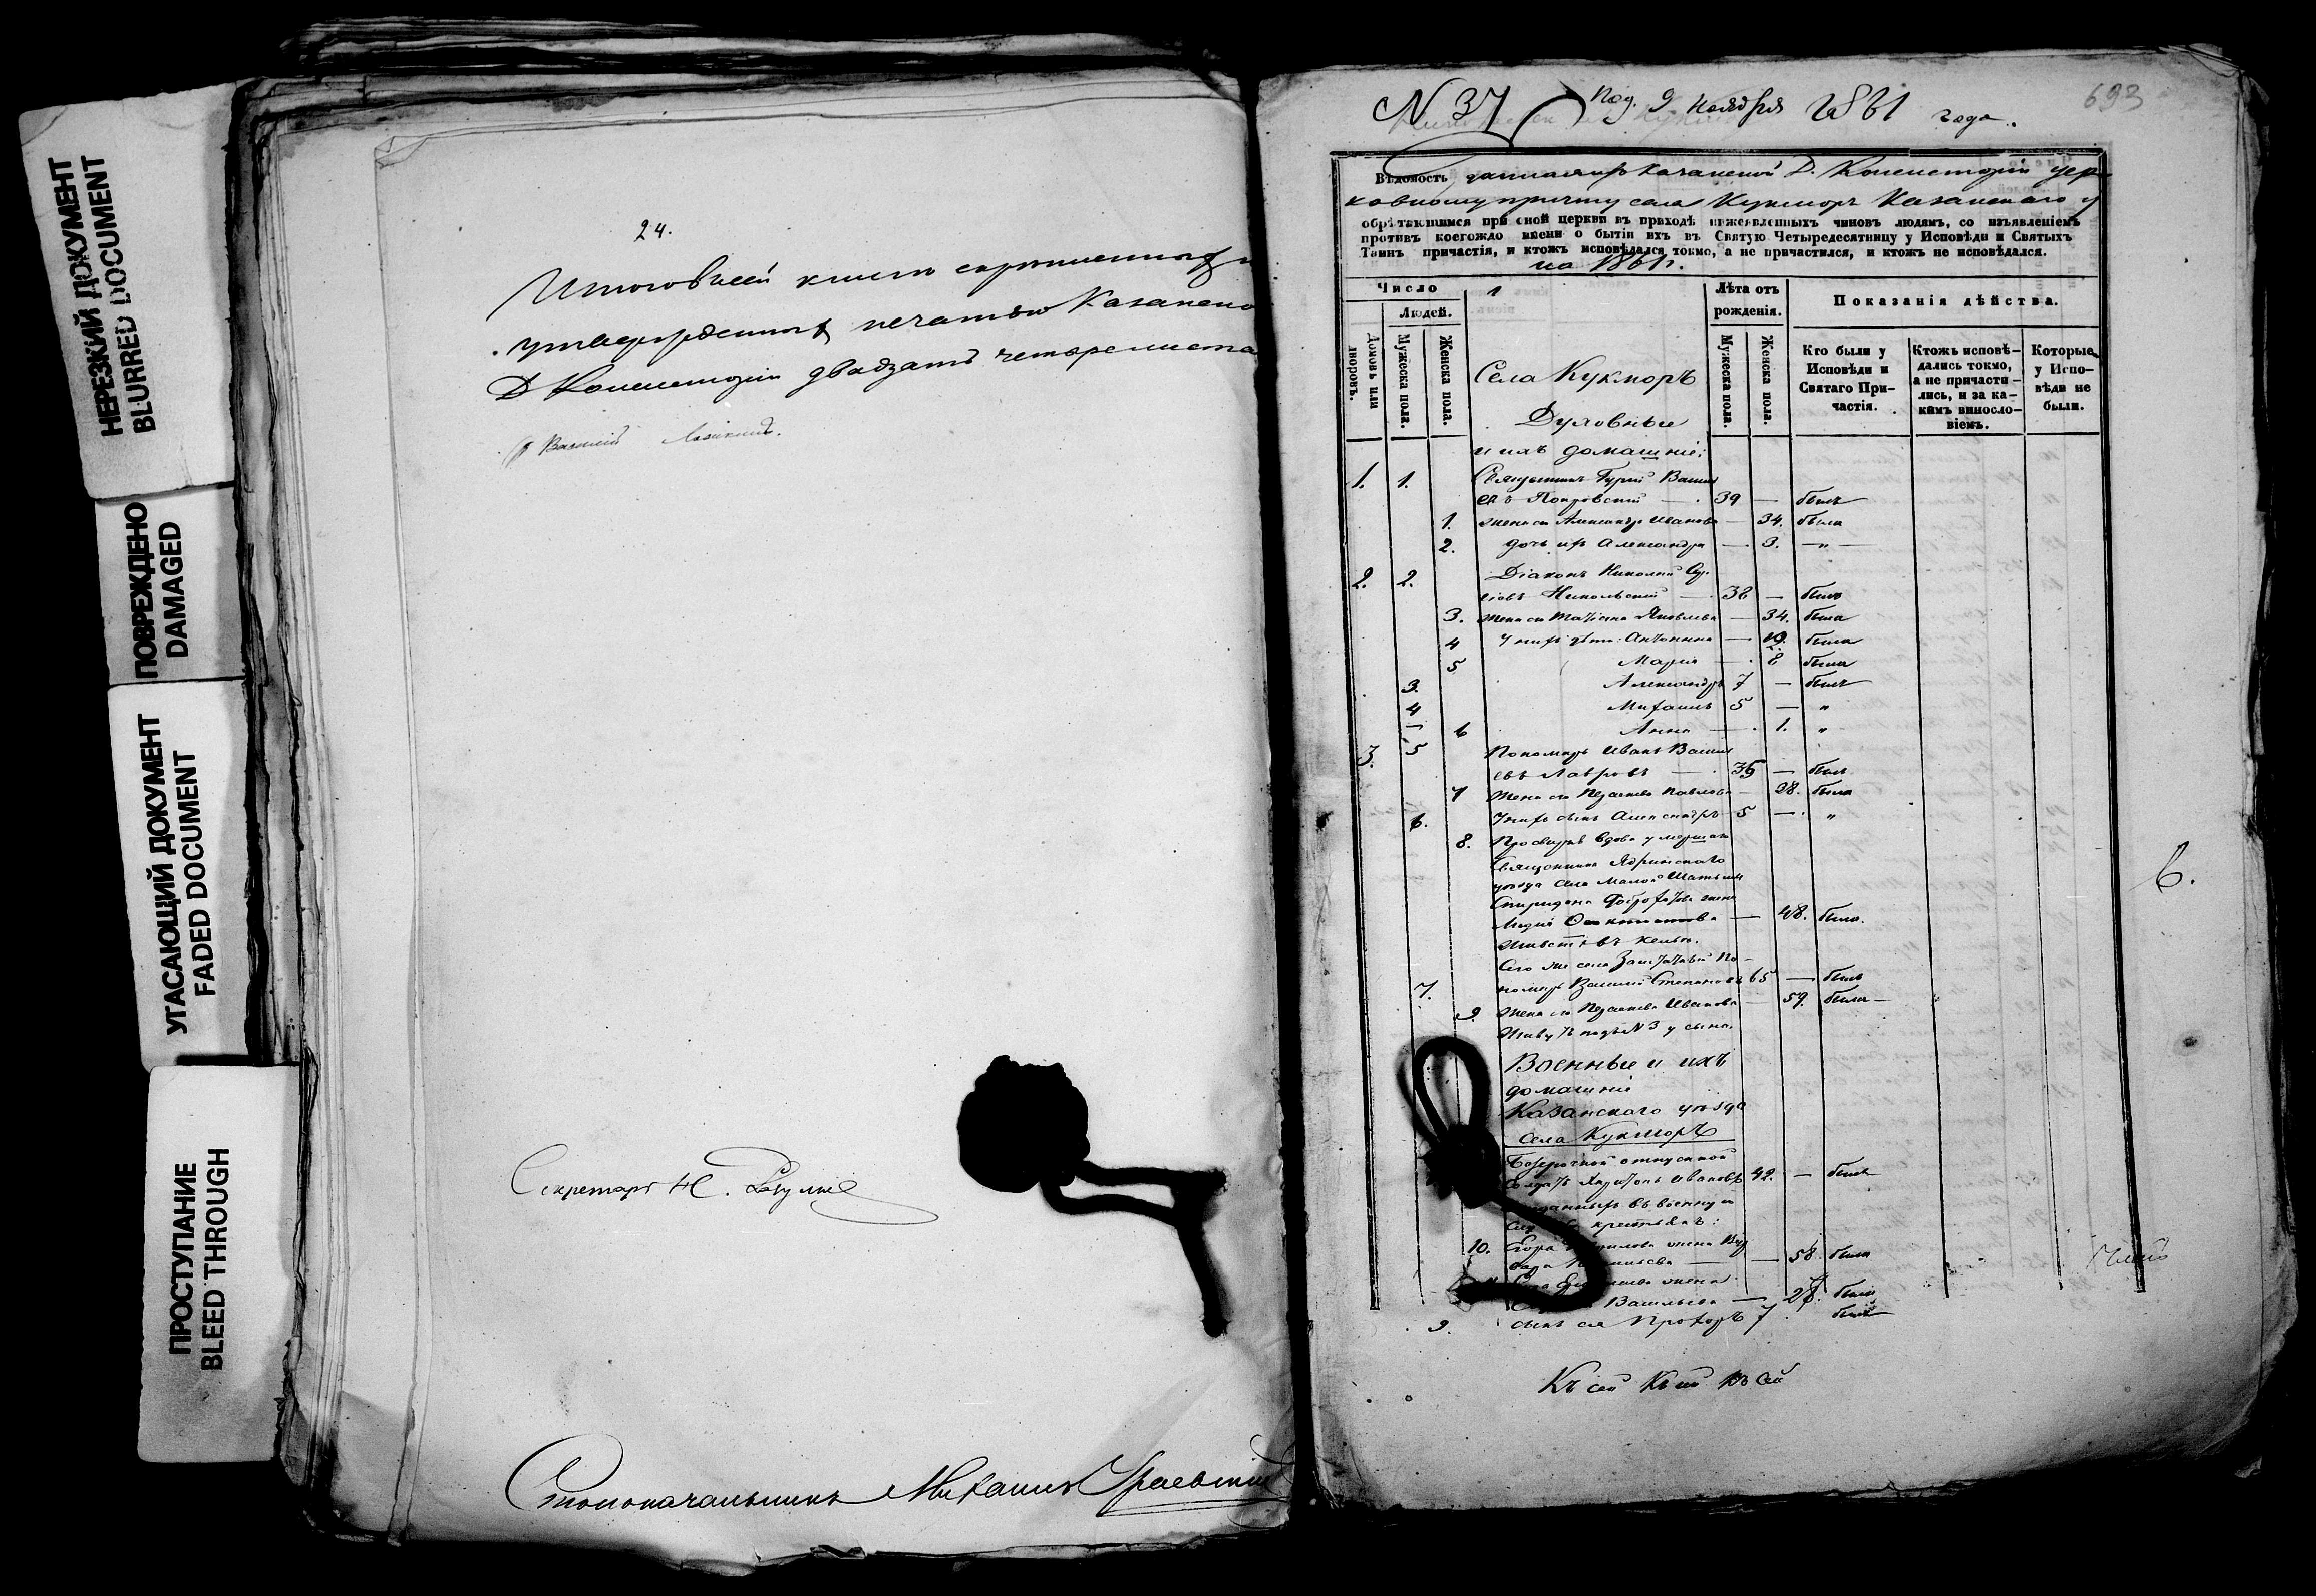 НЕРЕЗКИЙ ДОКУМЕНТ
BLURRED DOCUMENT
ПОВРЕЖДЕНО
DAMAGED
УГАСАЮЩИЙ ДОКУМЕНТ
FADED DOCUMENT
ПРОСТУПАНИЕ
BLEED THROUGH
24.
Итого в сей книге скрепленныхъ и
утвержденныхъ печатью Казанской
Д Консисторіи двадцать четыре листа
Василій
Секретарь
Столоначальникъ Михаилъ
N 37 Под. 9 Ноября 1861 года.
693
Вѣдомость, данная изъ Казанской Д. Консисторіи цер-
ковному причту села Кукморъ Казанскаго у
обрѣтающимся при оной церкви въ приходѣ нижеявленныхъ чиновъ людямъ, со изъявленіемъ
противъ коегождо имени о бытіи ихъ въ Святую Четыредесятницу у Исповѣди и Святыхъ
Таинъ причастія, и ктожъ исповѣдался токмо, а не причастился, и ктожъ не исповѣдался.
на 1861 г.
Число
Домовъ или дворовъ.
Людей.
Мужеска пола.
Женска пола.
1
Лѣта отъ рожденія.
Мужеска пола.
Женска пола.
Показанія дѣйства.
Кто были у Исповѣди и Святаго Причастія.
Ктожъ исповѣ-дались токмо, а не причасти-лись, и за ка-кимъ винословіемъ.
Которые у Испо-вѣди не были.
Села Кукморъ
Духовные
и ихъ домашніе:
1. 1. Священникъ Гурій Василь
евъ Покровскій — 39 — былъ
1. Жена его Александра Иванова — 34. была
2. дочь ихъ Александра — 3. — „ —
2. 2. Діаконъ Николай
Никольскій — 38 — былъ
3. Жена его Татіана Яковлева — 34. была
4 У нихъ дѣти: Антонина — 19. была
5 Марія — 8 была
3. Александръ 7 — былъ
4 Михаилъ 5 — „
6 Анна — 1. „
3. 5 Пономарь Иванъ Василь
евъ Лавровъ — 35 — былъ
7 Жена его Пелагея Павлова — 28. была
6. У нихъ сынъ Александръ 5 — „
8. Просвирня вдова умершаго
Священника Ядринскаго
уѣзда села Малой Шатьмы
Спиридона жена
Лидія — 48. была.
Живетъ въ кельѣ.
Сего же села Заштатный По-
7. номарь Василій Степановъ 65 — былъ
9. Жена его Пелагея Иванова — 59. была —
Живутъ подъ N 3 у сына.
Военные и ихъ
домашніе
Казанскаго уѣзда
села Кукморъ
Безсрочно отпускной
Солдатъ Харитонъ Ивановъ 42. — былъ
въ военную
крестьянъ:
10. Егора жена Вар
вара — 58. была
жена
Васильева — 28. была
9. сынъ ея Прохоръ 7 былъ
6.
Къ сей